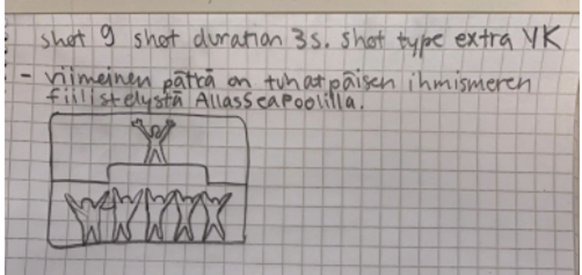 shot 9 shot duration 3s. shot type extra YK
- viimeinen pätkä on tuhatpäisen ihmismeren
fiilistelystä AllasSeaPoolilla.